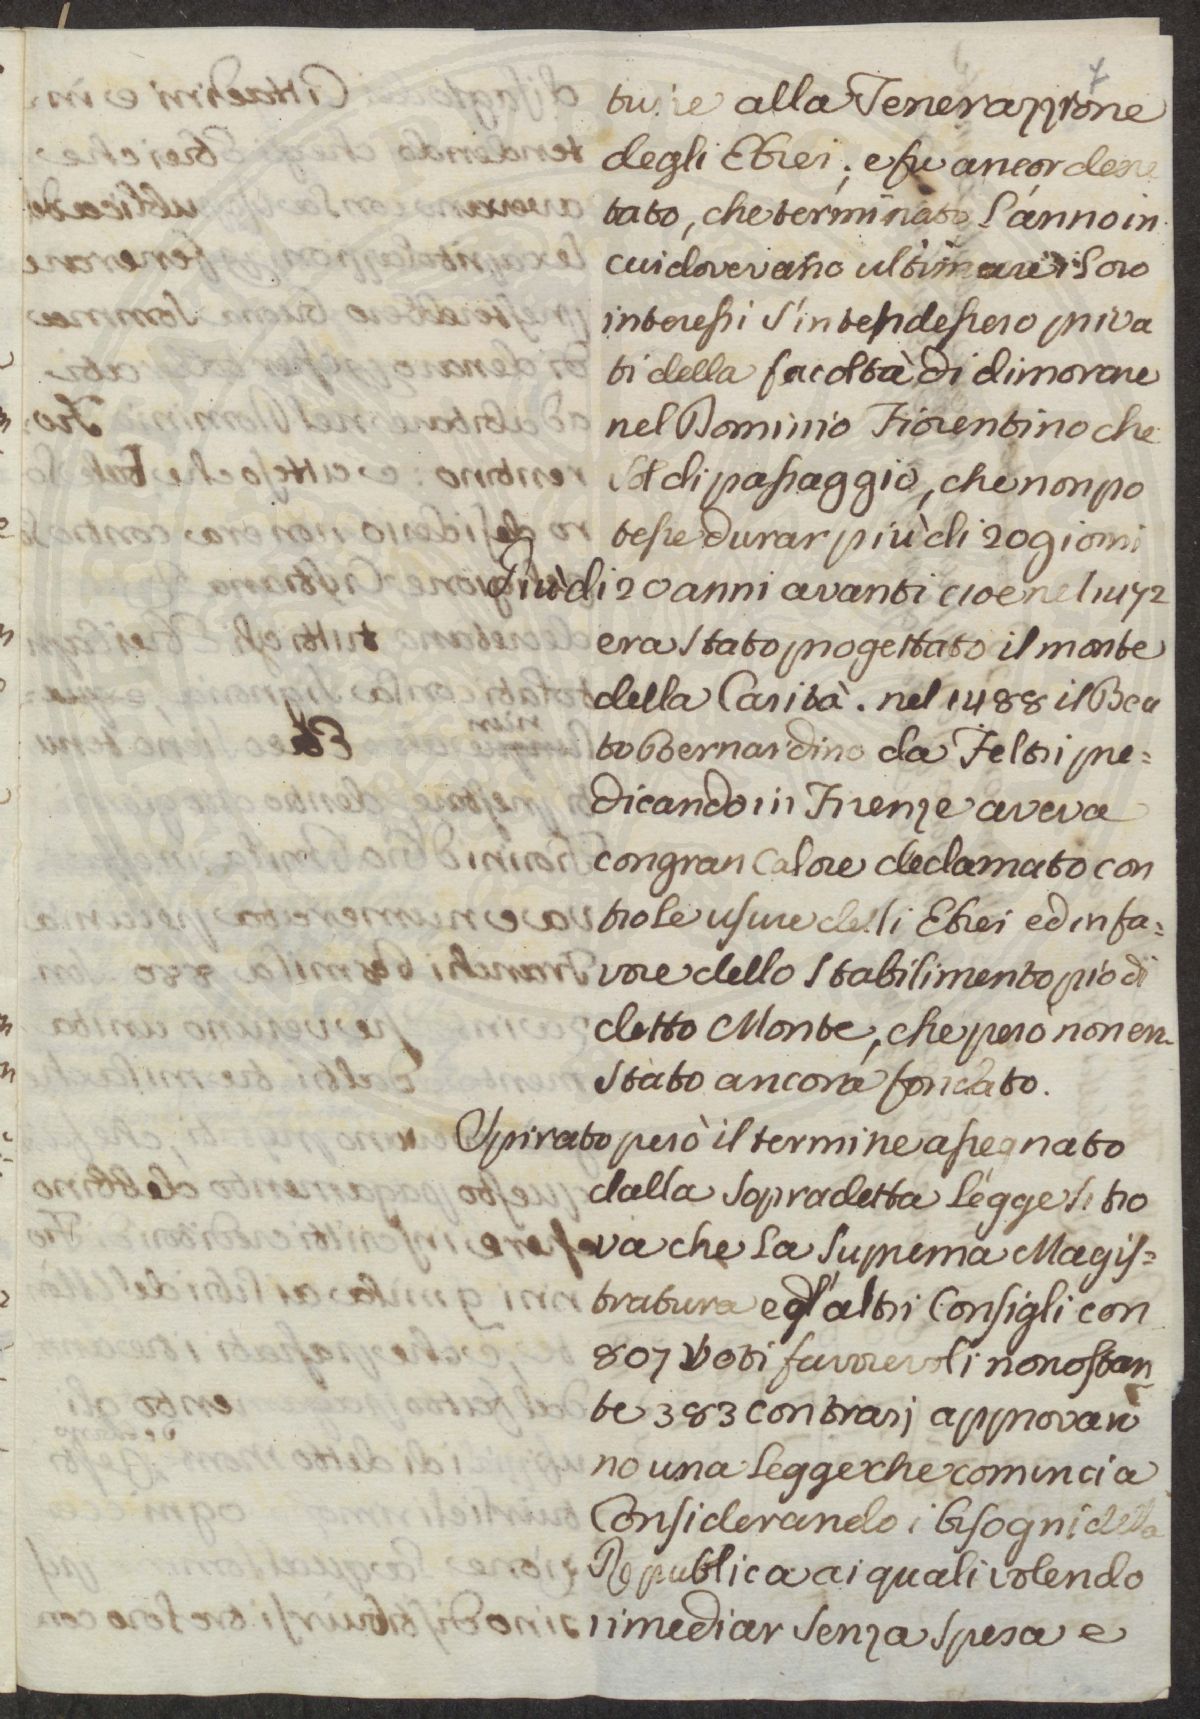 7
tuire alla Fenerazzione
degli Ebrei; e fu ancor decre
tato, che terminato l'anno in
cui dovevano ultimare i loro
interessi s'intendessero priva
ti della facoltà di dimorare
nel Dominio Fiorentino che
sol di passaggio, che non po
tesse durar più di 20 giorni
Più di 20 anni avanti cioe nel 1472
era stato progettato il monte
della Carità. nel 1488 il Bea
to Bernardino da Feltri pre=
dicando in Firenze aveva
con gran calore declamato con
tro le usure delli Ebrei ed in fa=
vore dello stabilimento pio di
detto Monte, che però non era
stato ancora fondato.
Spirato però il termine assegnato
dalla sopradetta Legge si tro
va che la suprema Magis=
tratura e gl'altri Consigli con
807 Voti favorevoli nonostan
te 383 contrarj approvan
no una Legge che comincia
Considerando i bisogni della
Republica ai quali volendo
rimediar senza spesa e